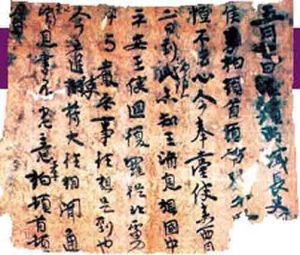 五月七日海頭西域長史
侯李柏頓首頓首
恒不去心今奉臺使來西月
二日到此未知王消息想國中
平安王使迴復羅從北虜
中與嚴參事往想是到也
今遣使苻大往相聞通
知消息書不悉意李柏頓首頓